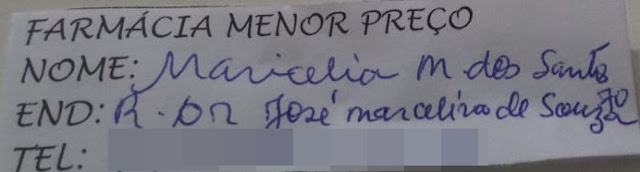 FARMÁCIA MENOR PREÇO
NOME: Maricelia M. dos Santos
END: R. DR José marcelino de Souza 70
TEL: